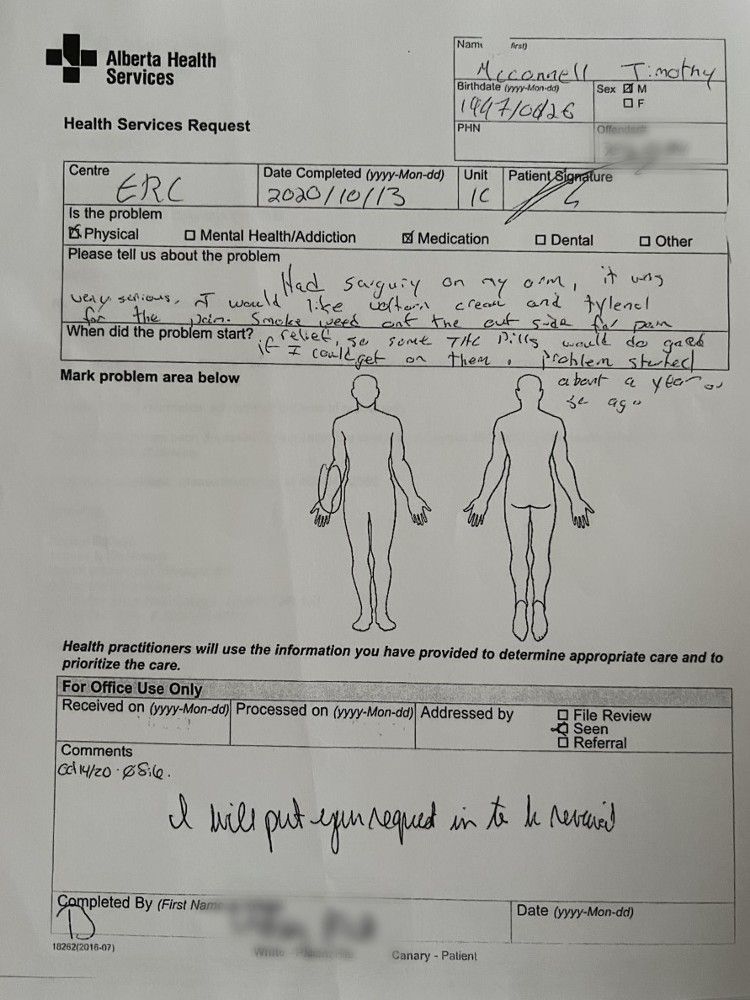 Alberta Health
Services
Health Services Request
Name first)
Mcconnell Timothy
Birthdate (yyyy-Mon-dd)
Sex ☑ M
☐ F
PHN
Centre
ERC
Date Completed (yyyy-Mon-dd)
2020/10/13
Unit
1C
Patient Signature
Is the problem
☑ Physical ☐ Mental Health/Addiction ☑ Medication ☐ Dental ☐ Other
Please tell us about the problem
Had surguiy on my arm, it was
very serious. I would like voltarn cream and tylenel
for the pain. Smoke weed ont the out side for pain
When did the problem start?
relief, so some THC Pills would do good
if I could get on them. problem started
about a year or
so ago
Mark problem area below
Health practitioners will use the information you have provided to determine appropriate care and to
prioritize the care.
For Office Use Only
Received on (yyyy-Mon-dd) Processed on (yyyy-Mon-dd) Addressed by
☐ File Review
☑ Seen
☐ Referral
Comments
Oct 14/20
I will put your request in to be
Completed By (First Name
Date (yyyy-Mon-dd)
18262(2016-07)
Canary - Patient